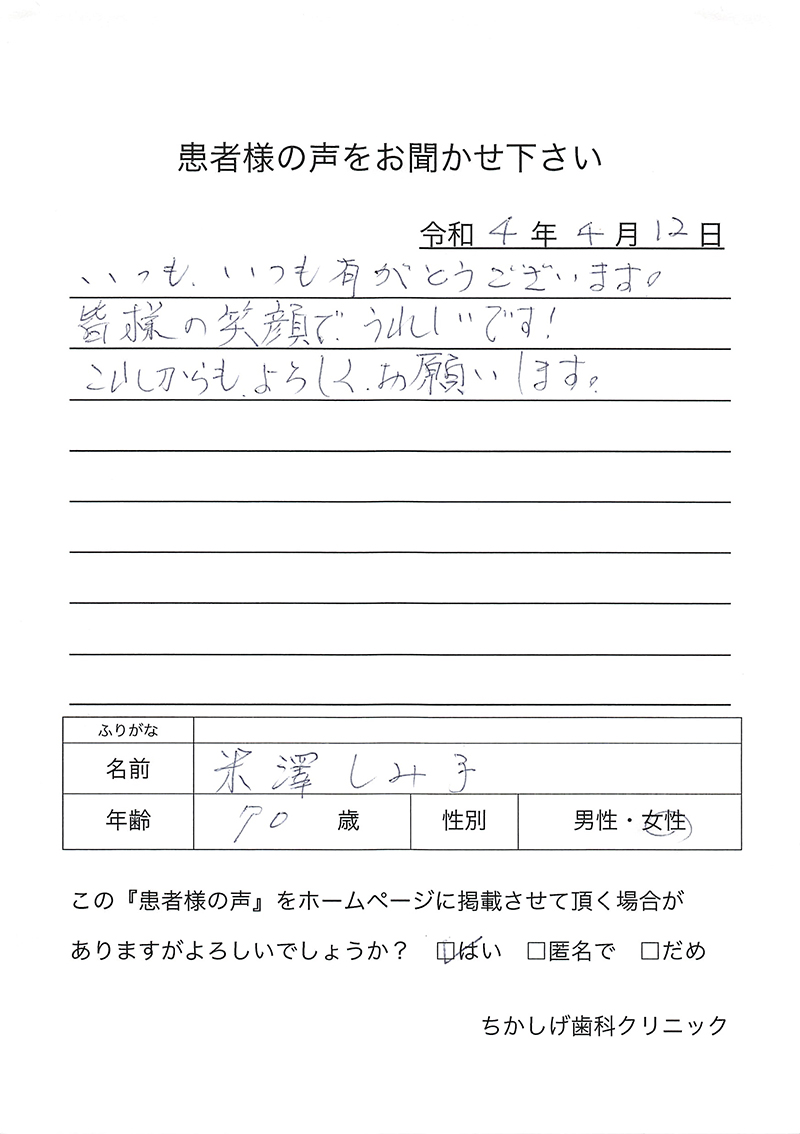 患者様の声をお聞かせ下さい
令和 4 年 4 月 12 日
いつも、いつも有がとうございます。
皆様の笑顔で、うれしいです!
これからも、よろしく、お願いします。
ふりがな
名前 米澤しみ子
年齢 70 歳 性別 男性・女性
この『患者様の声』をホームページに掲載させて頂く場合が
ありますがよろしいでしょうか? ☑はい □匿名で □だめ
ちかしげ歯科クリニック